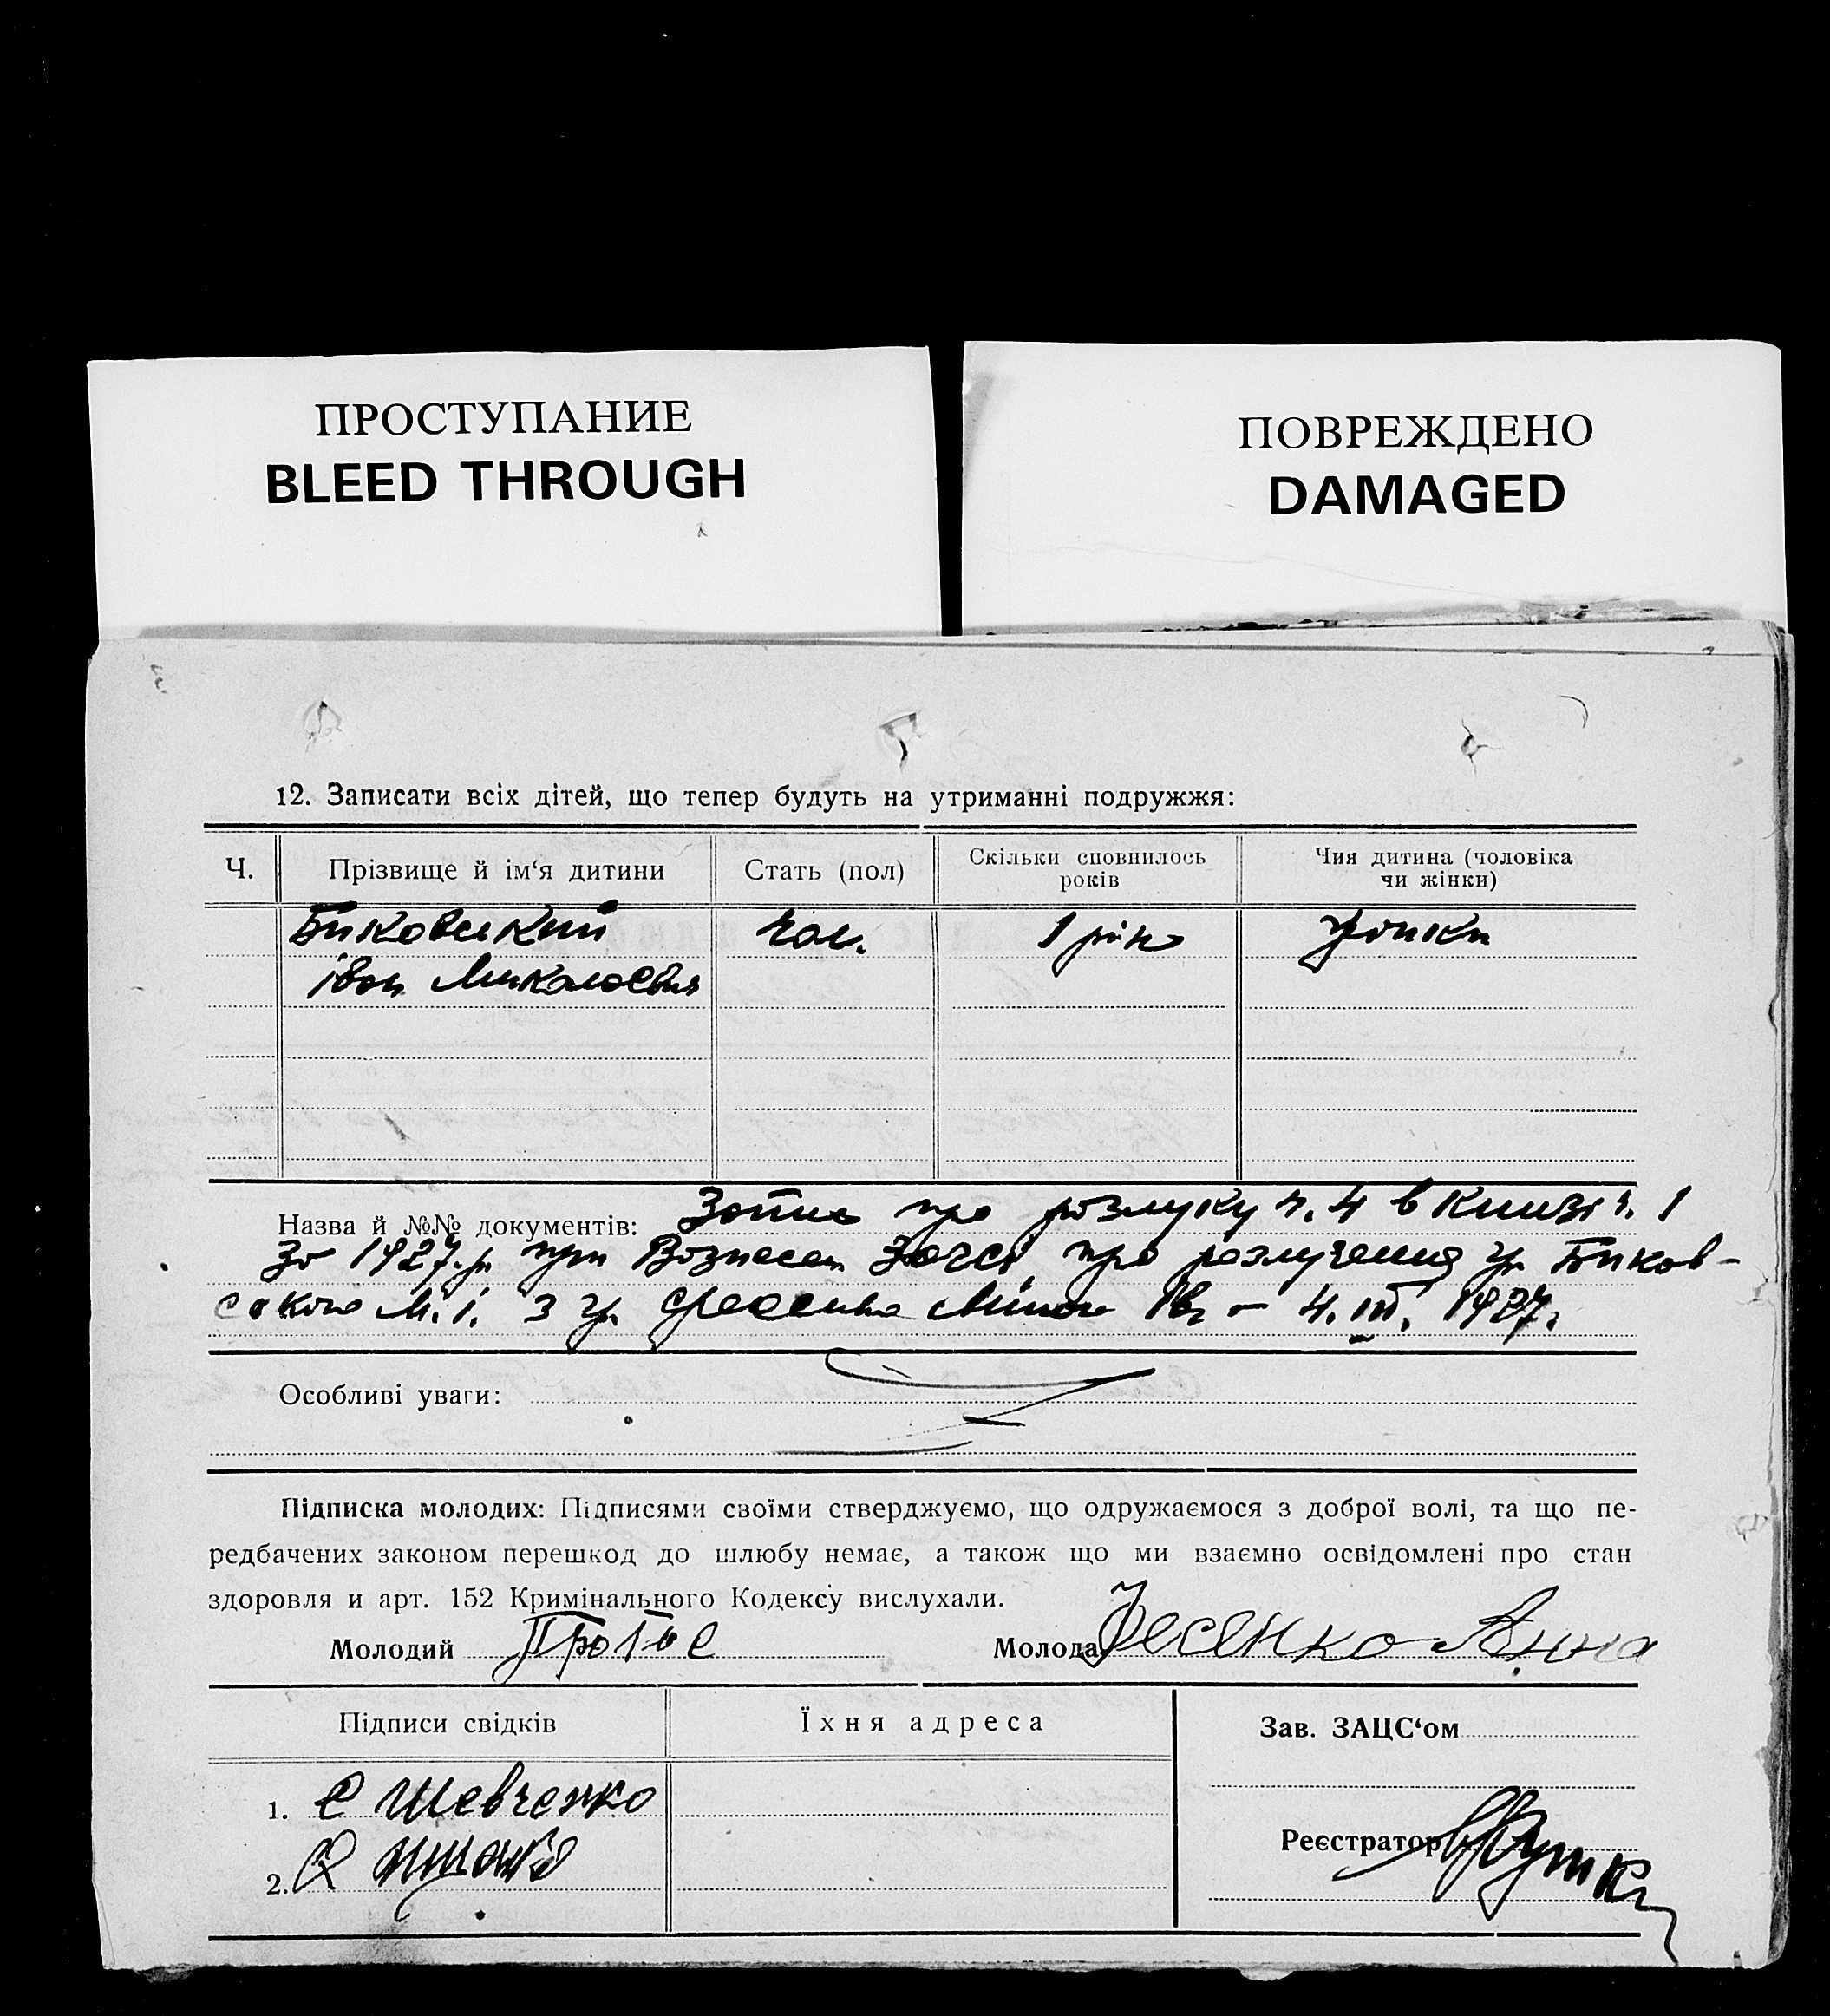 ПРОСТУПАНИЕ
BLEED THROUGH
ПОВРЕЖДЕНО
DAMAGED
12. Записати всіх дітей, що тепер будуть на утриманні подружжя:
Ч. Прізвище й ім‘я дитини Стать (пол) Скільки сповнилось років Чия дитина (чоловіка чи жінки)
Биковський чол. 1 рік жінки
Іван Миколаєвич
Назва й №№ документів: Запис про розлуку ч. 4 в книзі ч. 1
за 1927 р. при Вознесен. про разлучения гр. Биков-
ського М. І. з гр. 4. III. 1927.
Особливі уваги:
Підписка молодих: Підписями своїми стверджуємо, що одружаємося з доброї волі, та що пе-
редбачених законом перешкод до шлюбу немає, а також що ми взаємно освідомлені про стан
здоровля и арт. 152 Кримінального Кодексу вислухали.
Молодий Молода Фесенко Анна
Підписи свідків Їхня адреса Зав. ЗАЦС‘ом
1. Є Шевченко
Реєстратор
2.